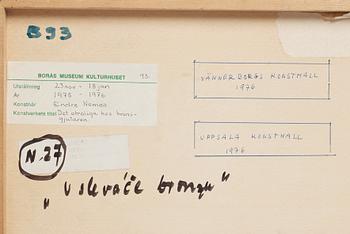 B93
BORÅS MUSEUM KULTURHUSET 93.
Utställning 23 nov - 18 jan
År 1975 - 1976
Konstnär Endre Nemes
Konstverkets titel Det otroliga hos brons-
gjutaren.
VÄNNERBORGS KONSTHALL
1976
UPPSALA KONSTHALL
1976
N.27
„U slevače bronzu"